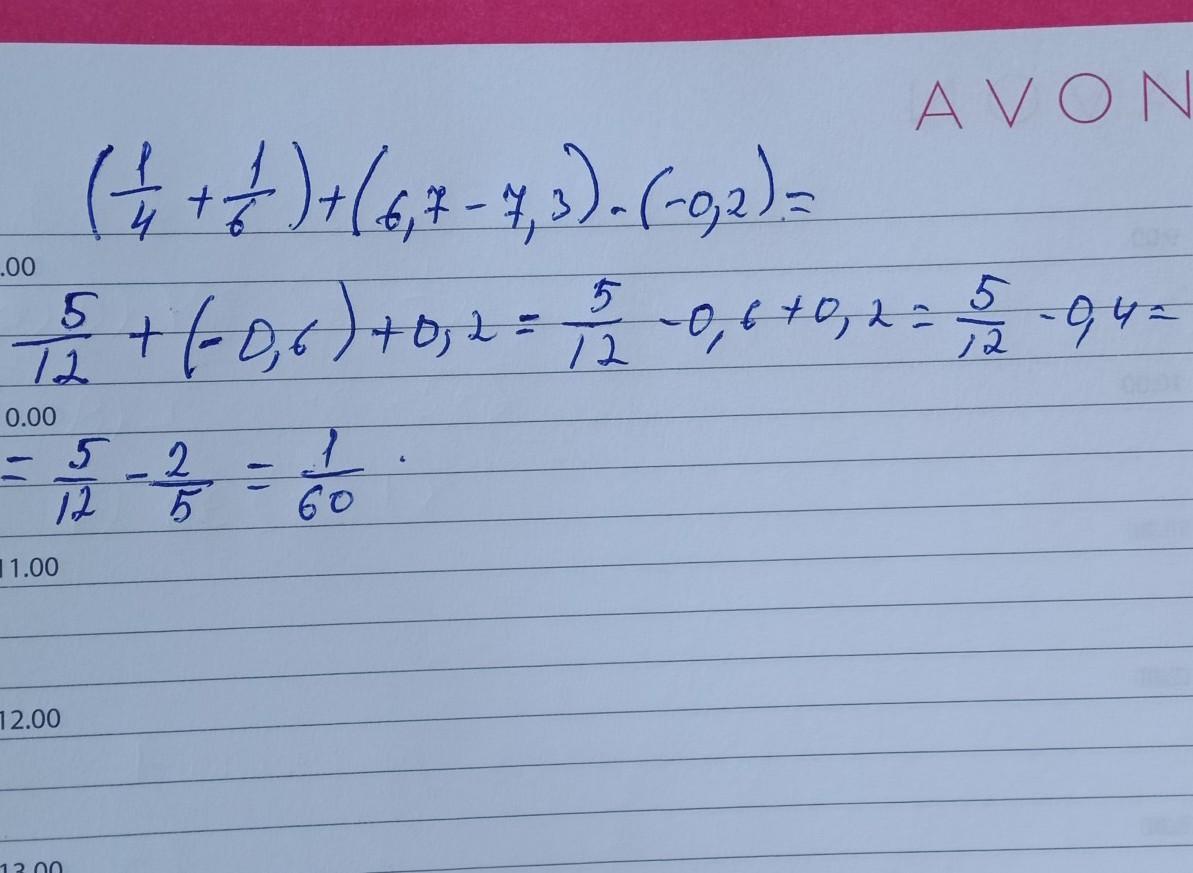 AVON
(1/4 + 1/6) + (6,7 - 7,3) - (-0,2) =
.00
5/12 + (-0,6) + 0,2 = 5/12 - 0,6 + 0,2 = 5/12 - 0,4 =
0.00
= 5/12 - 2/5 = 1/60 .
11.00
12.00
13.00